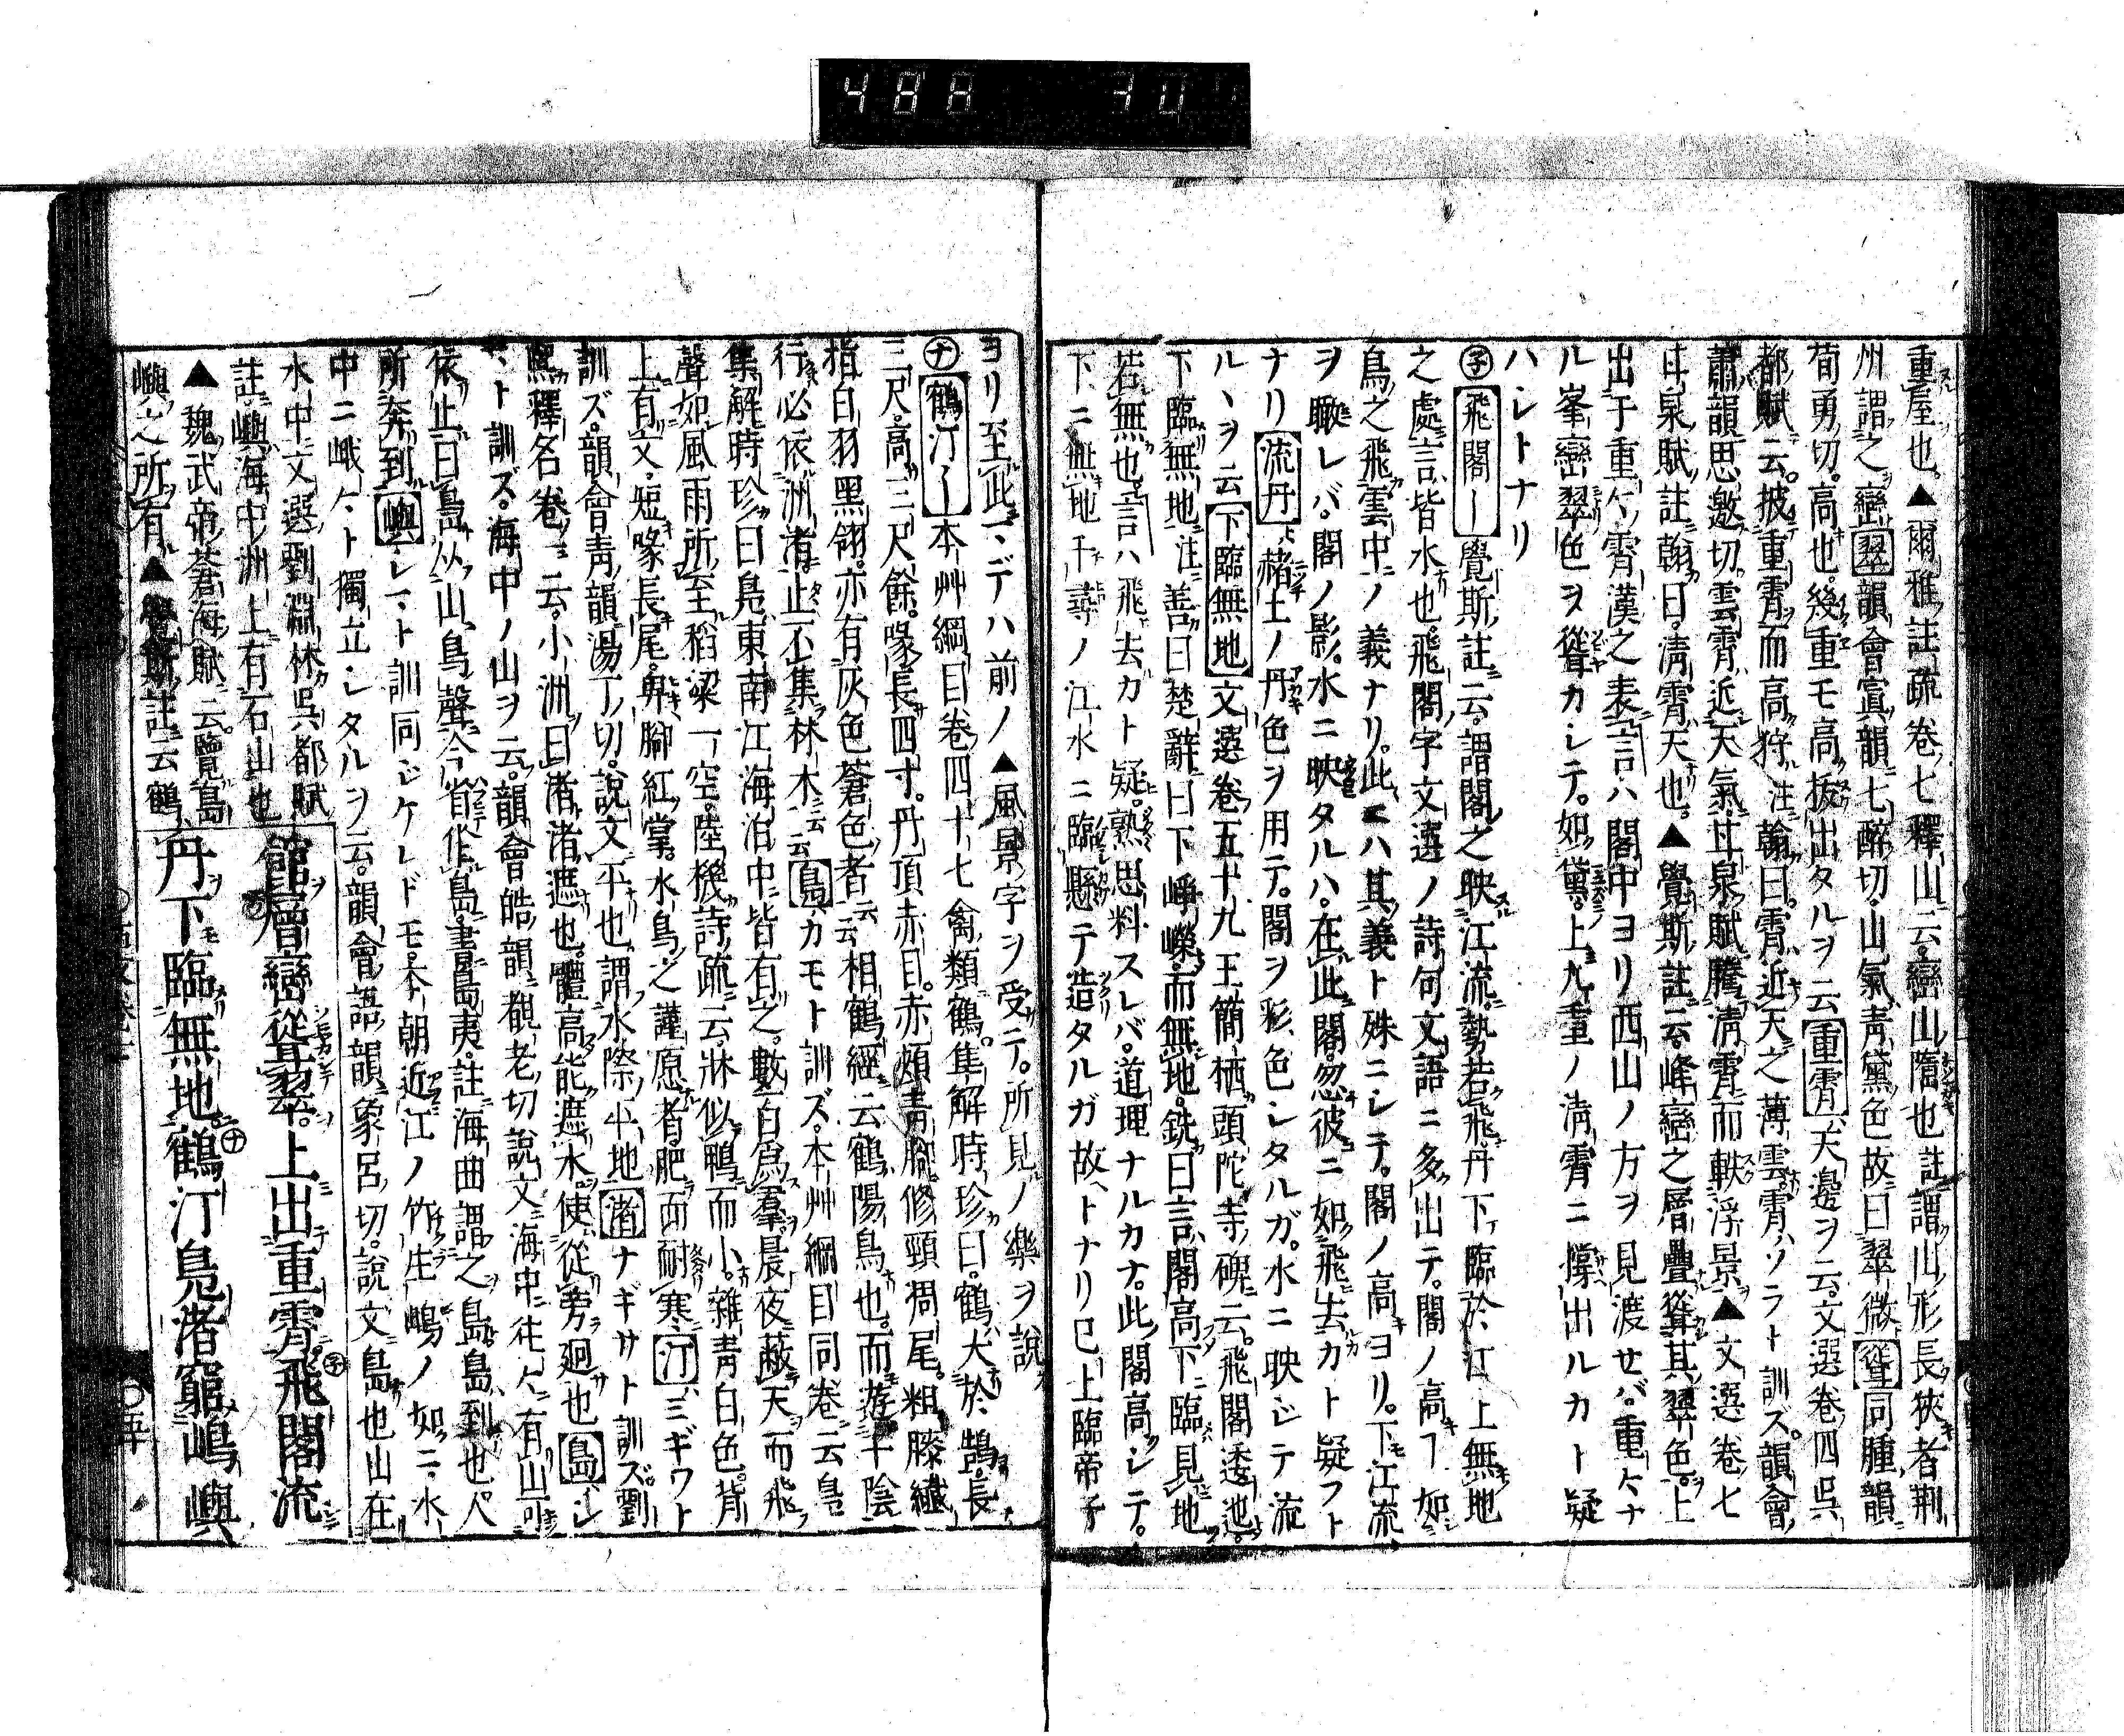 重屋也。▲爾雅註疏卷七釋山云。巒山隋也註謂山形長狹者荆
州謂之巒翠韻會寘韻七醉切。山氣青黛色故曰翠微聳同腫韻
荀勇切。高也。幾重モ高拔出タルヲ云重霄天邊ヲ云。文選卷四吳
都賦云。披重霄而高狩。注翰曰。霄近天之薄雲。霄ソラト訓ズ。韻會
蕭韻思邀切雲霄近天氣。甘泉賦騰淸霄而軼浮景▲文選卷七
甘泉賦註翰曰。淸霄天也。▲覺斯註云。峰巒之層疊聳其翠色。上
出于重〻霄漢之表言ハ閣中ヨリ西山ノ方ヲ見渡セバ。重〻ナ
ル峯巒翠色ヲ聳カシテ。如黛。上九重ノ淸霄ニ撑出ルカト疑
ハシトナリ
子飛閣ー覺斯註云。謂閣之映江流。勢若飛丹下臨於江上無地
之處言皆水也飛閣字文選ノ詩句文語ニ多出テ。閣ノ高ヿ如
鳥之飛雲中ノ義ナリ。此ニハ其義ト殊ニシテ。閣ノ高ヨリ。下江流
ヲ瞰レバ。閣ノ影。水ニ映タルハ。在此閣。忽彼ニ如飛去カト疑フト
ナリ流丹ハ赭土ノ丹色ヲ用テ。閣ヲ彩色シタルガ。水ニ映ジテ流
ルヽヲ云下臨無地文選卷五十九王簡栖頭陀寺碑云。飛閣逶迤。
下臨無地注善曰楚辭曰下崢嶸而無地。銑曰言閣高下臨見地
若無也。言ハ飛去カト疑。熟思料スレバ。道理ナルカナ。此閣高シテ。
下ニ無地千尋ノ江水ニ臨懸テ造タルガ故トナリ已上臨帝子
ヨリ至此マデハ前ノ▲風景字ヲ受テ。所見ノ樂ヲ說
ナ鶴汀ー本艸綱目卷四十七禽類鶴。集解時珍曰。鶴大於鵠。長
三尺。高三尺餘。喙長四寸。丹頂赤目。赤頰青脚。修頸凋尾。粗膝纖
指白羽黑翎。亦有灰色蒼色者云云相鶴經云鶴陽鳥也。而遊于陰
行必依洲渚止不集林木云云鳧カモト訓ズ。本艸綱目同卷云鳧
集解時珍曰鳧東南江海泊中皆有之。數百爲羣晨夜蔽天而飛
聲如風雨所至稻粱一空。陸機詩疏云。狀似鴨而小。雜青白色。背
上有文。短喙長尾。卑脚紅掌。水鳥之謹愿者肥而耐寒汀ミギワト
訓ズ。韻會青韻湯丁切。說文平也謂水際平地渚ナギサト訓ズ。劉
熈釋名卷一云。小洲曰渚渚遮也。體高能遮水。使從旁廻也島シ
マト訓ズ。海中ノ山ヲ云。韻會皓韻覩老切說文海中往〻有山可
依止曰島从山鳥聲今省作島。書島夷。註海曲謂之島島到也人
所奔到嶼シマト訓同ジケレドモ。本朝近江ノ竹生嶋ノ如ニ。水
中ニ峨〻ト獨立シタルヲ云。韻會語韻象呂切。說文島也山在
水中文選劉淵林吳都賦
註嶼海中洲上有石山也
▲魏武帝蒼海賦云。覽島
嶼之所有▲覺斯註云鶴
館層巒聳翠。上出重霄。飛閣流
丹下臨無地。鶴汀鳧渚窮嶋嶼